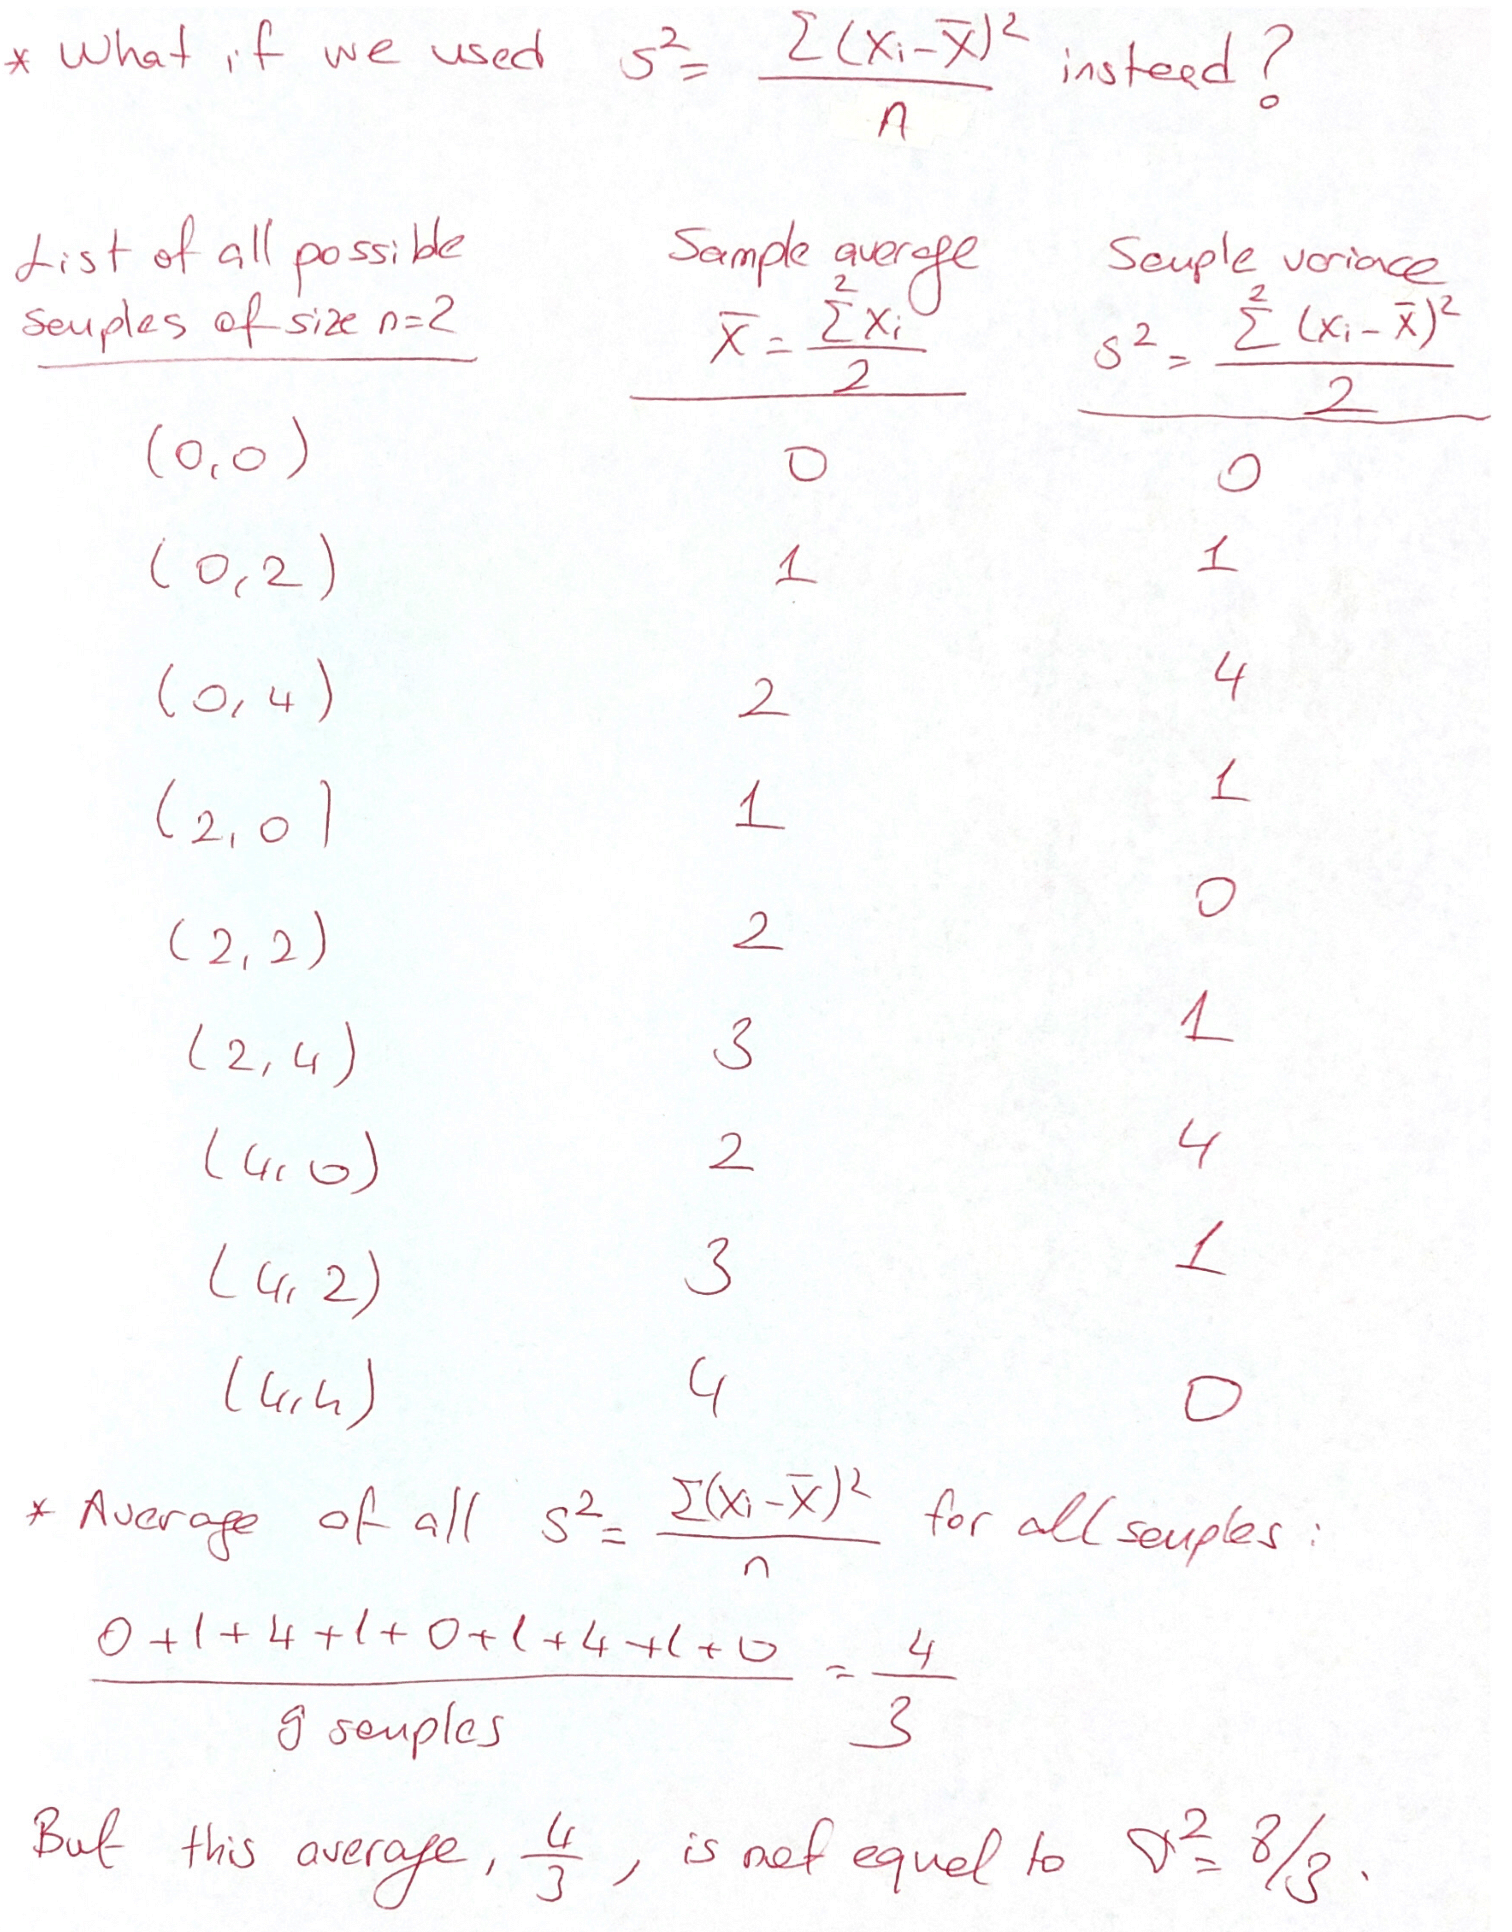 * What if we used s² = Σ(xᵢ-x̄)² / n instead?
List of all possible samples of size n=2 | Sample average x̄ = Σ² xᵢ / 2 | Sample variance s² = Σ² (xᵢ-x̄)² / 2
(0,0) 0 0
(0,2) 1 1
(0,4) 2 4
(2,0) 1 1
(2,2) 2 0
(2,4) 3 1
(4,0) 2 4
(4,2) 3 1
(4,4) 4 0
* Average of all s² = Σ(xᵢ-x̄)² / n for all samples:
0+1+4+1+0+1+4+1+0 / 9 samples = 4/3
But this average, 4/3, is not equal to σ² = 8/3.